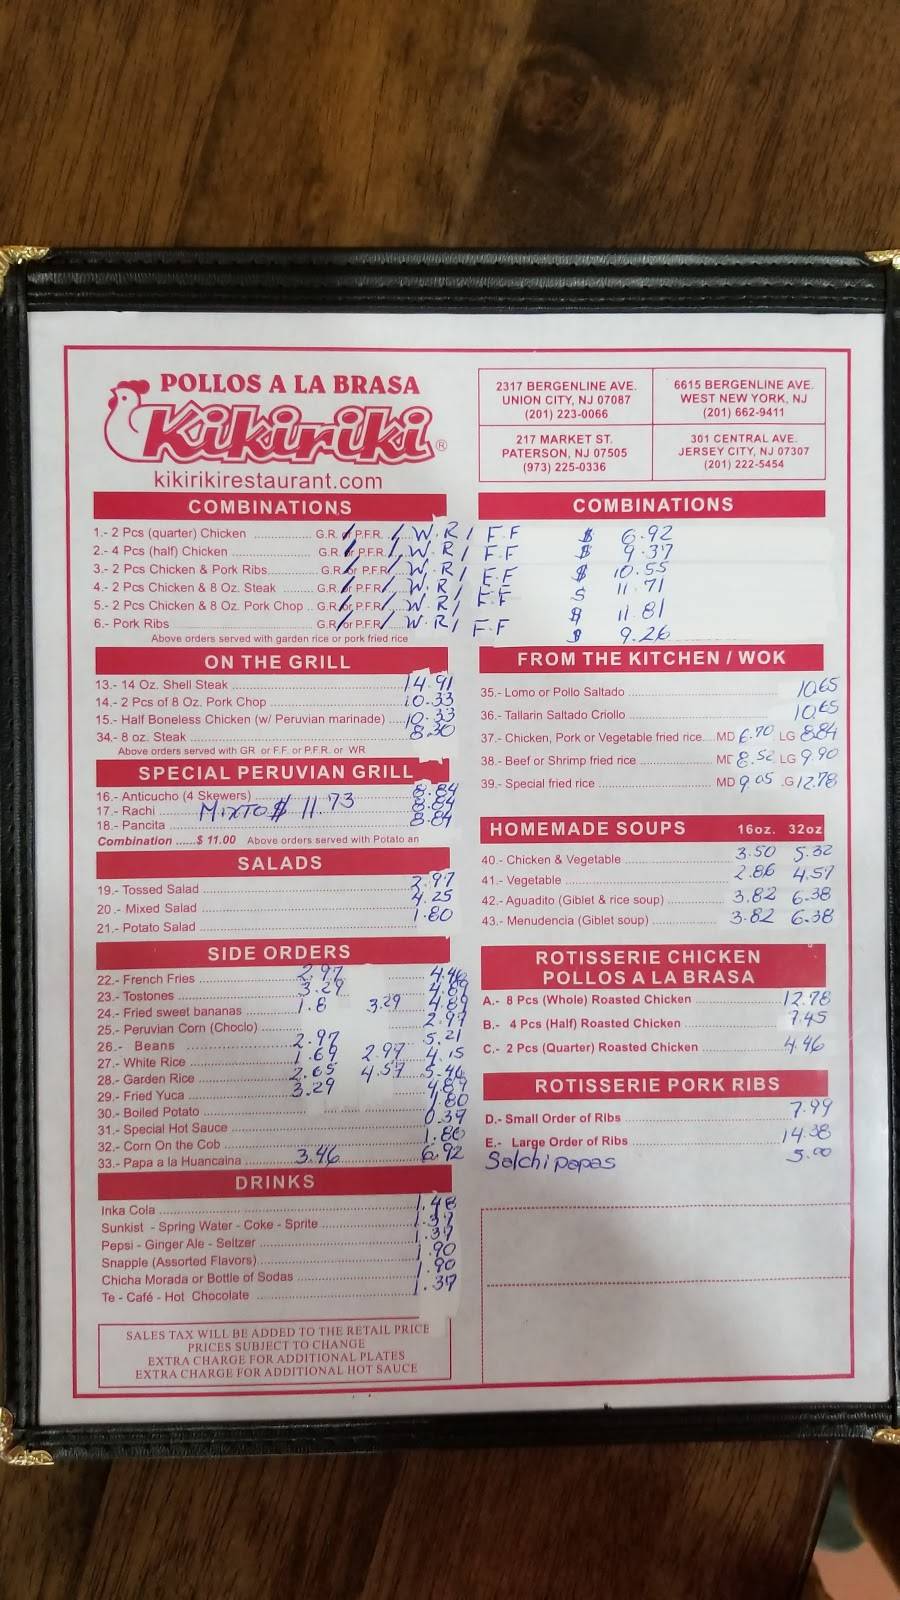 POLLOS A LA BRASA
Kikiriki ®
kikirikirestaurant.com
2317 BERGENLINE AVE.
UNION CITY, NJ 07087
(201) 223-0066
6615 BERGENLINE AVE.
WEST NEW YORK, NJ
(201) 662-9411
217 MARKET ST.
PATERSON, NJ 07505
(973) 225-0336
301 CENTRAL AVE.
JERSEY CITY, NJ 07307
(201) 222-5454
COMBINATIONS
COMBINATIONS
1.- 2 Pcs (quarter) Chicken G.R. / P.F.R. / W.R / F.F $ 6.92
2.- 4 Pcs (half) Chicken G.R. / P.F.R. / W.R / F.F $ 9.37
3.- 2 Pcs Chicken & Pork Ribs G.R. / P.F.R. / W.R / F.F $ 10.55
4.- 2 Pcs Chicken & 8 Oz. Steak G.R. / P.F.R. / W.R / F.F $ 11.71
5.- 2 Pcs Chicken & 8 Oz. Pork Chop G.R. / P.F.R. / W.R / F.F $ 11.81
6.- Pork Ribs G.R. / P.F.R. / W.R / F.F $ 9.26
Above orders served with garden rice or pork fried rice
ON THE GRILL
13.- 14 Oz. Shell Steak 14.91
14.- 2 Pcs of 8 Oz. Pork Chop 10.33
15.- Half Boneless Chicken (w/ Peruvian marinade) 10.33
34.- 8 oz. Steak 8.30
Above orders served with GR or F.F. or P.F.R. or WR
SPECIAL PERUVIAN GRILL
16.- Anticucho (4 Skewers) 8.84
17.- Rachi MIXTO $ 11.73 8.84
18.- Pancita 8.84
Combination ......$ 11.00 Above orders served with Potato an
SALADS
19.- Tossed Salad 2.97
20.- Mixed Salad 4.25
21.- Potato Salad 1.80
SIDE ORDERS
22.- French Fries 2.97 4.46
23.- Tostones 3.29 4.89
24.- Fried sweet bananas 1.8 3.29 4.89
25.- Peruvian Corn (Choclo) 2.97
26.- Beans 2.97 5.21
27.- White Rice 1.69 2.97 4.15
28.- Garden Rice 2.65 4.57 5.46
29.- Fried Yuca 3.29 4.89
30.- Boiled Potato 1.80
31.- Special Hot Sauce 0.39
32.- Corn On the Cob 1.80
33.- Papa a la Huancaina 3.46 6.92
DRINKS
Inka Cola 1.48
Sunkist - Spring Water - Coke - Sprite 1.37
Pepsi - Ginger Ale - Seltzer 1.37
Snapple (Assorted Flavors) 1.90
Chicha Morada or Bottle of Sodas 1.90
Te - Café - Hot Chocolate 1.37
SALES TAX WILL BE ADDED TO THE RETAIL PRICE
PRICES SUBJECT TO CHANGE
EXTRA CHARGE FOR ADDITIONAL PLATES
EXTRA CHARGE FOR ADDITIONAL HOT SAUCE
FROM THE KITCHEN / WOK
35.- Lomo or Pollo Saltado 10.65
36.- Tallarin Saltado Criollo 10.65
37.- Chicken, Pork or Vegetable fried rice MD 6.70 LG 8.84
38.- Beef or Shrimp fried rice MD 8.52 LG 9.90
39.- Special fried rice MD 9.05 .G 12.78
HOMEMADE SOUPS 16oz. 32oz
40.- Chicken & Vegetable 3.50 5.32
41.- Vegetable 2.86 4.57
42.- Aguadito (Giblet & rice soup) 3.82 6.38
43.- Menudencia (Giblet soup) 3.82 6.38
ROTISSERIE CHICKEN
POLLOS A LA BRASA
A.- 8 Pcs (Whole) Roasted Chicken 12.78
B.- 4 Pcs (Half) Roasted Chicken 7.45
C.- 2 Pcs (Quarter) Roasted Chicken 4.46
ROTISSERIE PORK RIBS
D.- Small Order of Ribs 7.99
E.- Large Order of Ribs 14.38
Salchipapas 5.00